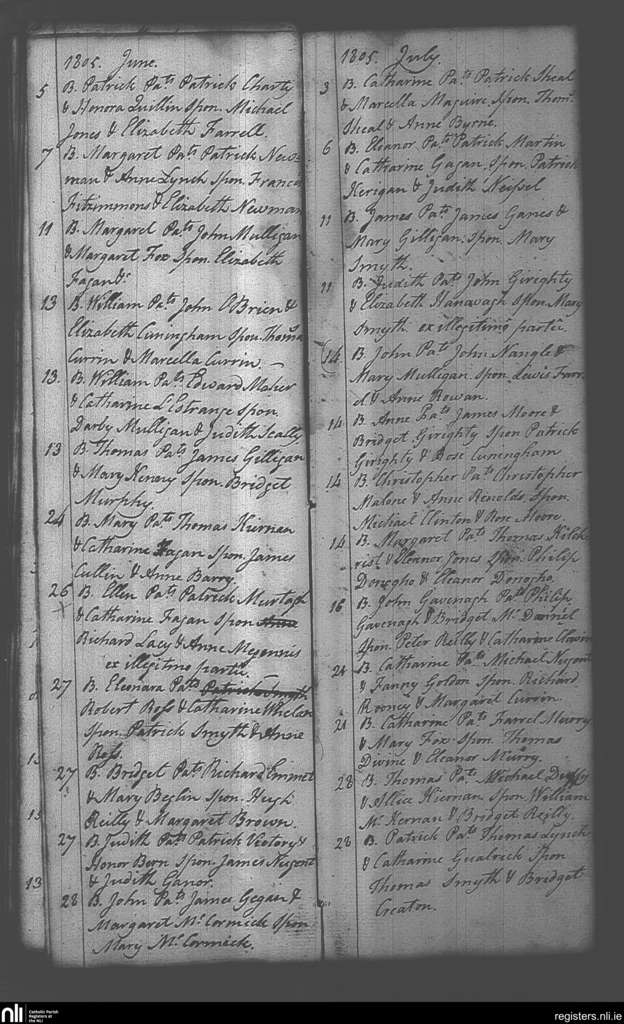 1805. June.
5 B. Patrick Pats Patrick Charty
& Honora Quillin Spon. Michael
Jones & Elizabeth Farrell.
7 B. Margaret Pats Patrick New=
man & Anne Lynch Spon. Francis
Fitzimmons & Elizabeth Newman
11 B. Margaret Pats John Mulligan
& Margaret Fox Spon. Elizabeth
Fagan &c
13 B. William Pats John O'Brien &
Elizabeth Cuningham Spon. Thomas
Currin & Marcella Currin.
13. B. William Pats Edward Maher
& Catharine L'Estrange Spon.
Darby Mulligan & Judith Scally
13 B. Thomas Pats James Gilligan
& Mary Kenny Spon. Bridget
Murphy.
24 B. Mary Pats Thomas Kiernan
& Catharine Fagan Spon. James
Cullin & Anne Barry.
26 B. Ellen Pats Patrick Murtagh
& Catharine Fagan Spon. Anne
Richard Lacy & Anne Megennis
ex illegitimo partu.
27 B. Eleonara Pats Patrick Smyth
Robert Ross & Catharine Whelan
Spon. Patrick Smyth & Anne
Ross.
27 B. Bridget Pats Richard Emmet
& Mary Beglin Spon. Hugh
Reilly & Margaret Brown.
27 B. Judith Pats Patrick Victory &
Honor Bern Spon. James Nugent
& Judith Ganor.
28 B. John Pats James Gegan &
Margaret McCormick Spon
Mary McCormick.
1805. July.
3 B. Catharine Pats Patrick Sheal
& Marcella Maguire. Spon. Thoms
Sheal & Anne Byrne.
6 B. Eleanor Pats Patrick Martin
& Catharine Gagan. Spon. Patrick
Kerigan & Judith
11 B. James Pats James Ganes &
Mary Gilligan. Spon. Mary
Smyth.
11 B. Judith Pats John Girighty
& Elizabeth Hanavagh Spon. Mary
Smyth ex illegitimo partu.
14 B. John Pats John Nangle &
Mary Mulligan. Spon. Lewis Farr
& Anne Rowan.
14 B. Anne Pats James Moore &
Bridget Girighty Spon Patrick
Girighty & Rose Cuningham
14 B. Christopher Pats Christopher
Malone & Anne Renolds. Spon.
Michael Clinton & Rose Moore.
14 B. Margaret Pats Thomas Kilch
rist & Eleanor Jones Spon. Philip
Donogho & Eleanor Donogho
16 B. John Gavenagh Pats Philip
Gavenagh & Bridget Mc Daniel
Spon. Peter Reilly & Catharine
21 B. Catharine Pats Michael Nugent
& Fanny Goldon Spon. Richard
Rooney & Margaret Currin.
21 B. Catharine Pats Farrel Murry
& Mary Fox Spon. Thomas
Divine & Eleanor Murry.
28 B. Thomas Pats Michael Duffy
& Allice Kiernan Spon. William
Mc Kernan & Bridget Reilly.
28 B. Patrick Pats Thomas Lynch
& Catharine Gualrick Spon
Thomas Smyth & Bridget
Creaton.
nli
Catholic Parish
Registers at
the NLI
registers.nli.ie